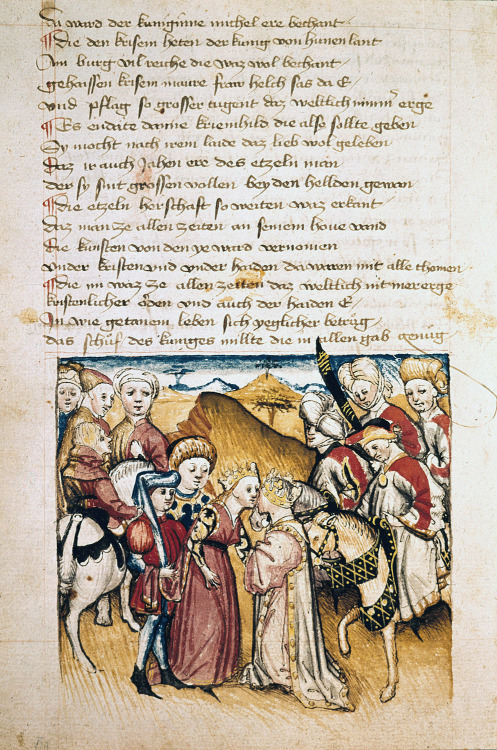 Du ward der kuniginne michel ere bechant
Die den krisem heten der kunig von hunen lant
Ain burg vil reiche die waz wol bechant
gehaissen krisem maure fraw helch sas da E
Vnd pflag so grosser tugent daz weltlich nimmer erge
Es endaite danne kriemhild die also sollte geben
Sy mocht nach irem laide daz lieb wol geleben
Daz ir auch Jahen ere des etzeln man
der sy sint grossen vollen bey den hellden gewan
Die etzeln herschaft so weiten waz erkant
daz man ze allen zeiten an seinem houe vand
die kunsten von den ye ward vernomen
vnder kristen vnd vnder haiden da waren mit alle chomen
Die im waz ze allen zeiten daz weltlich nit mer erge
kristenlicher orden vnd auch der haiden E
In wie getanem leben sich yeglicher betrug
das schuf des kuniges millte die in allen gab genug